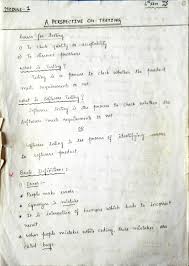 MODULE-1
A PERSPECTIVE ON TESTING
Basis for Testing
1) To check quality or acceptability
2) To discover problems
What is Testing?
Testing is a process to check whether the product
meet requirements or not.
What is Software Testing?
Software Testing is the process to check whether the
software meet requirements or not
OR
Software testing is the process of identifying errors
in software product.
Basic Definitions:
Error:
People make errors
Synonym is mistake
It is interaction of humans which leads to incorrect
result
When people mistakes while coding, these mistakes are
called bugs